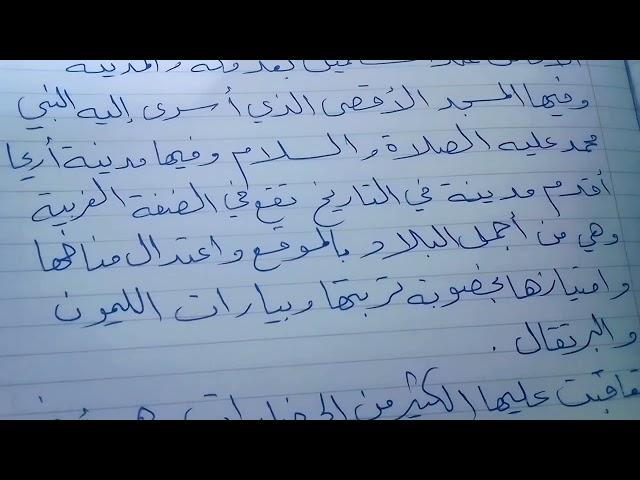 بعد مكة والمدينة
وفيها المسجد الأقصى الذي أسرى إليه النبي
محمد عليه الصلاة والسلام وفيها مدينة أريحا
أقدم مدينة في التاريخ تقع في الضفة الغربية
وهي من أجمل البلاد بالموقع واعتدال مناخها
وامتيازها بخصوبة تربتها وبيارات الليمون
والبرتقال .
عليها الكثير من الحضارات